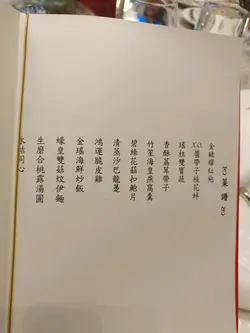 菜譜
金豬耀紅袍
X.O.醬帶子桂花蚌
瑤柱雙寶蔬
香酥荔茸帶子
竹笙海皇燕窩羹
碧綠花菇扣鮑片
清蒸沙巴龍躉
鴻運脆皮雞
金瑤海鮮炒飯
蠔皇雙菇炆伊麵
生磨合桃露湯圓
永結同心